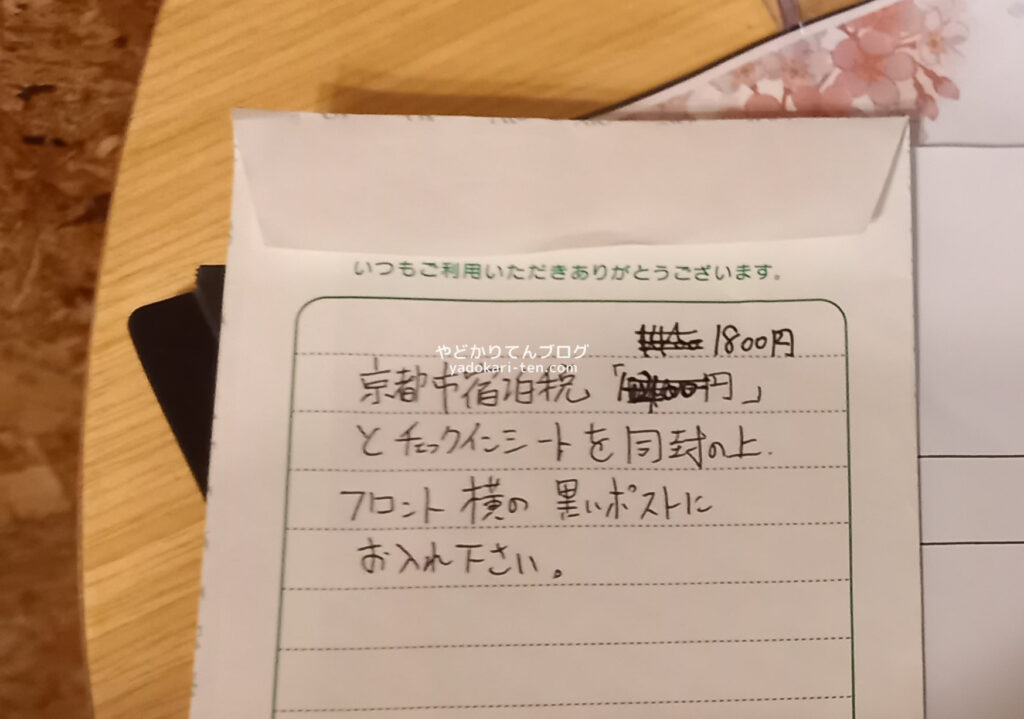 いつもご利用いただきありがとうございます。
1800円
やどかりてんブログ
yadokari-ten.com
京都市宿泊税「円」
とチェックインシートを同封の上.
フロント横の黒いポストに
お入れ下さい。